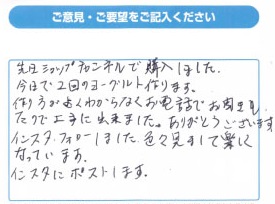 ご意見・ご要望をご記入ください
先日ショップチャンネルで購入しました。
今日で2回のヨーグルト作ります。
作り方が良くわからなくお電話でお聞きし
たので上手に出来ました。ありがとうございます
インスタ、フォローしました。色々見まして楽しく
なっています。
インスタにポストします。